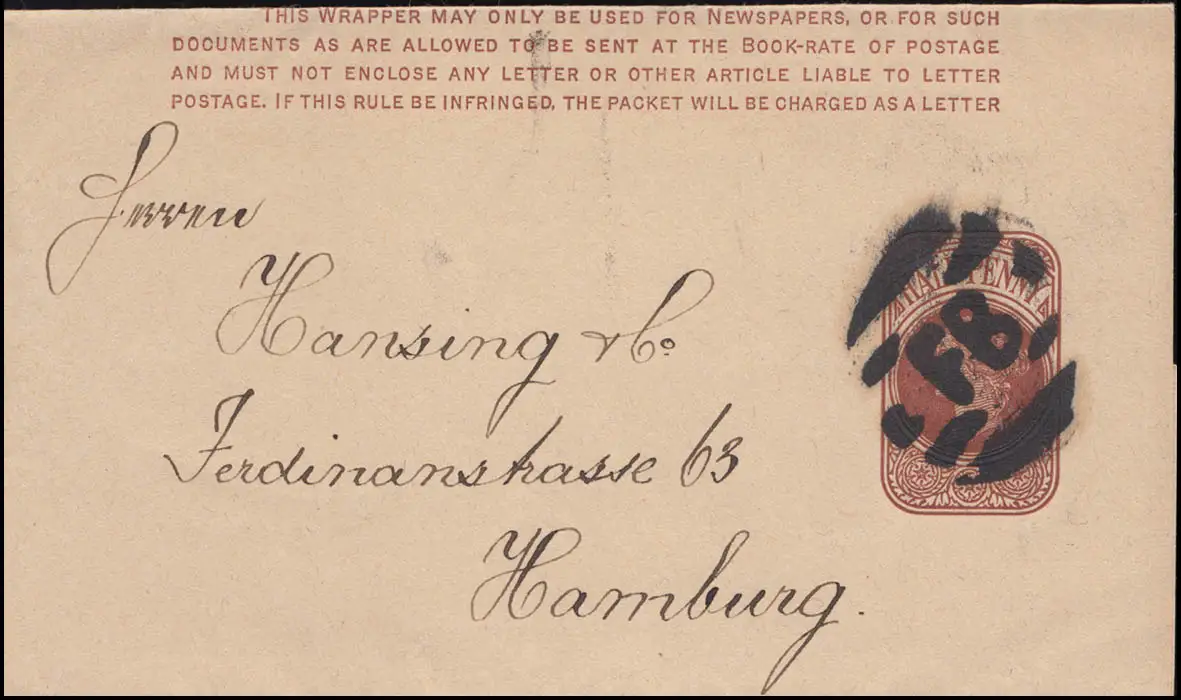 THIS WRAPPER MAY ONLY BE USED FOR NEWSPAPERS, OR FOR SUCH
DOCUMENTS AS ARE ALLOWED TO BE SENT AT THE BOOK-RATE OF POSTAGE
AND MUST NOT ENCLOSE ANY LETTER OR OTHER ARTICLE LIABLE TO LETTER
POSTAGE. IF THIS RULE BE INFRINGED, THE PACKET WILL BE CHARGED AS A LETTER
Herren
Hansing & Co.
Ferdinanstrasse 63
Hamburg.
HALFPENNY
FB